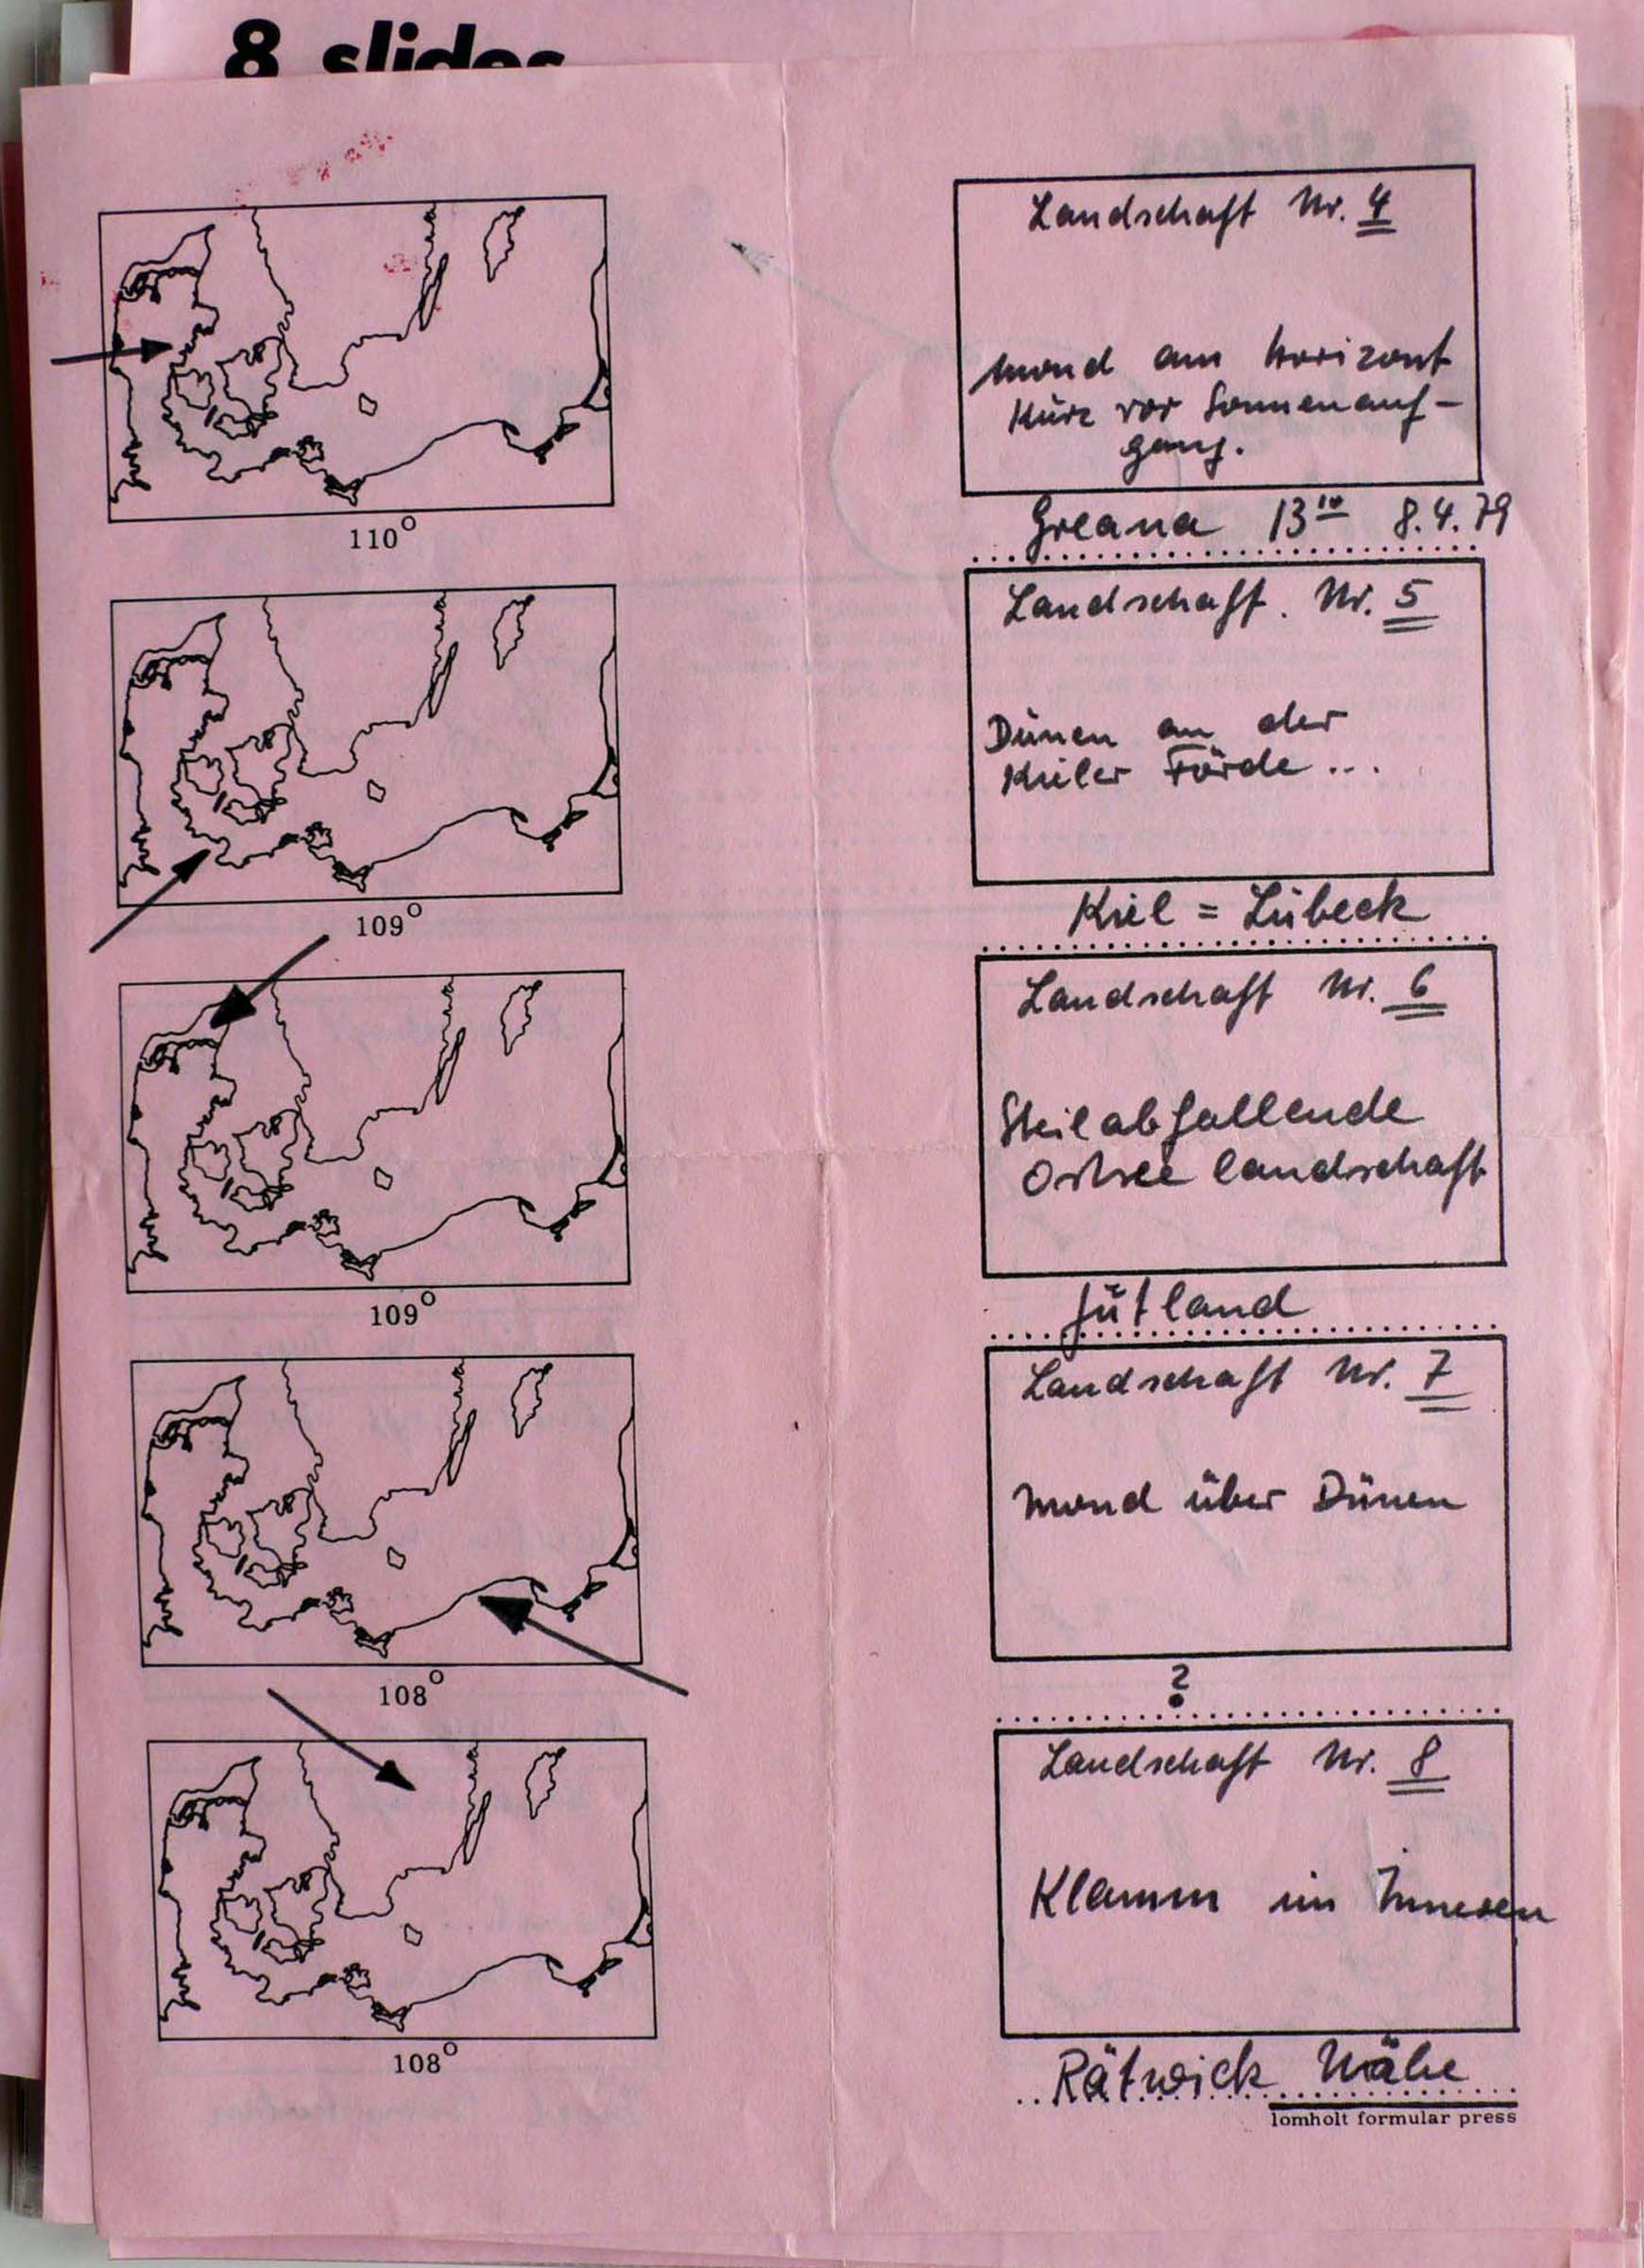 8 slides
110°
Landschaft Nr. 4
Mond am Horizont
Kurz vor Sonnenauf-
gang.
Greana 13¹⁰ 8.4.79
109°
Landschaft. Nr. 5
Dünen an der
Kieler Förde...
Kiel = Lübeck
109°
Landschaft Nr. 6
Steilabfallende
Ostsee landschaft
Jütland
108°
Landschaft Nr. 7
Mond über Dünen
?
108°
Landschaft Nr. 8
Klamm im Inneren
Rätwick Nähe
lomholt formular press